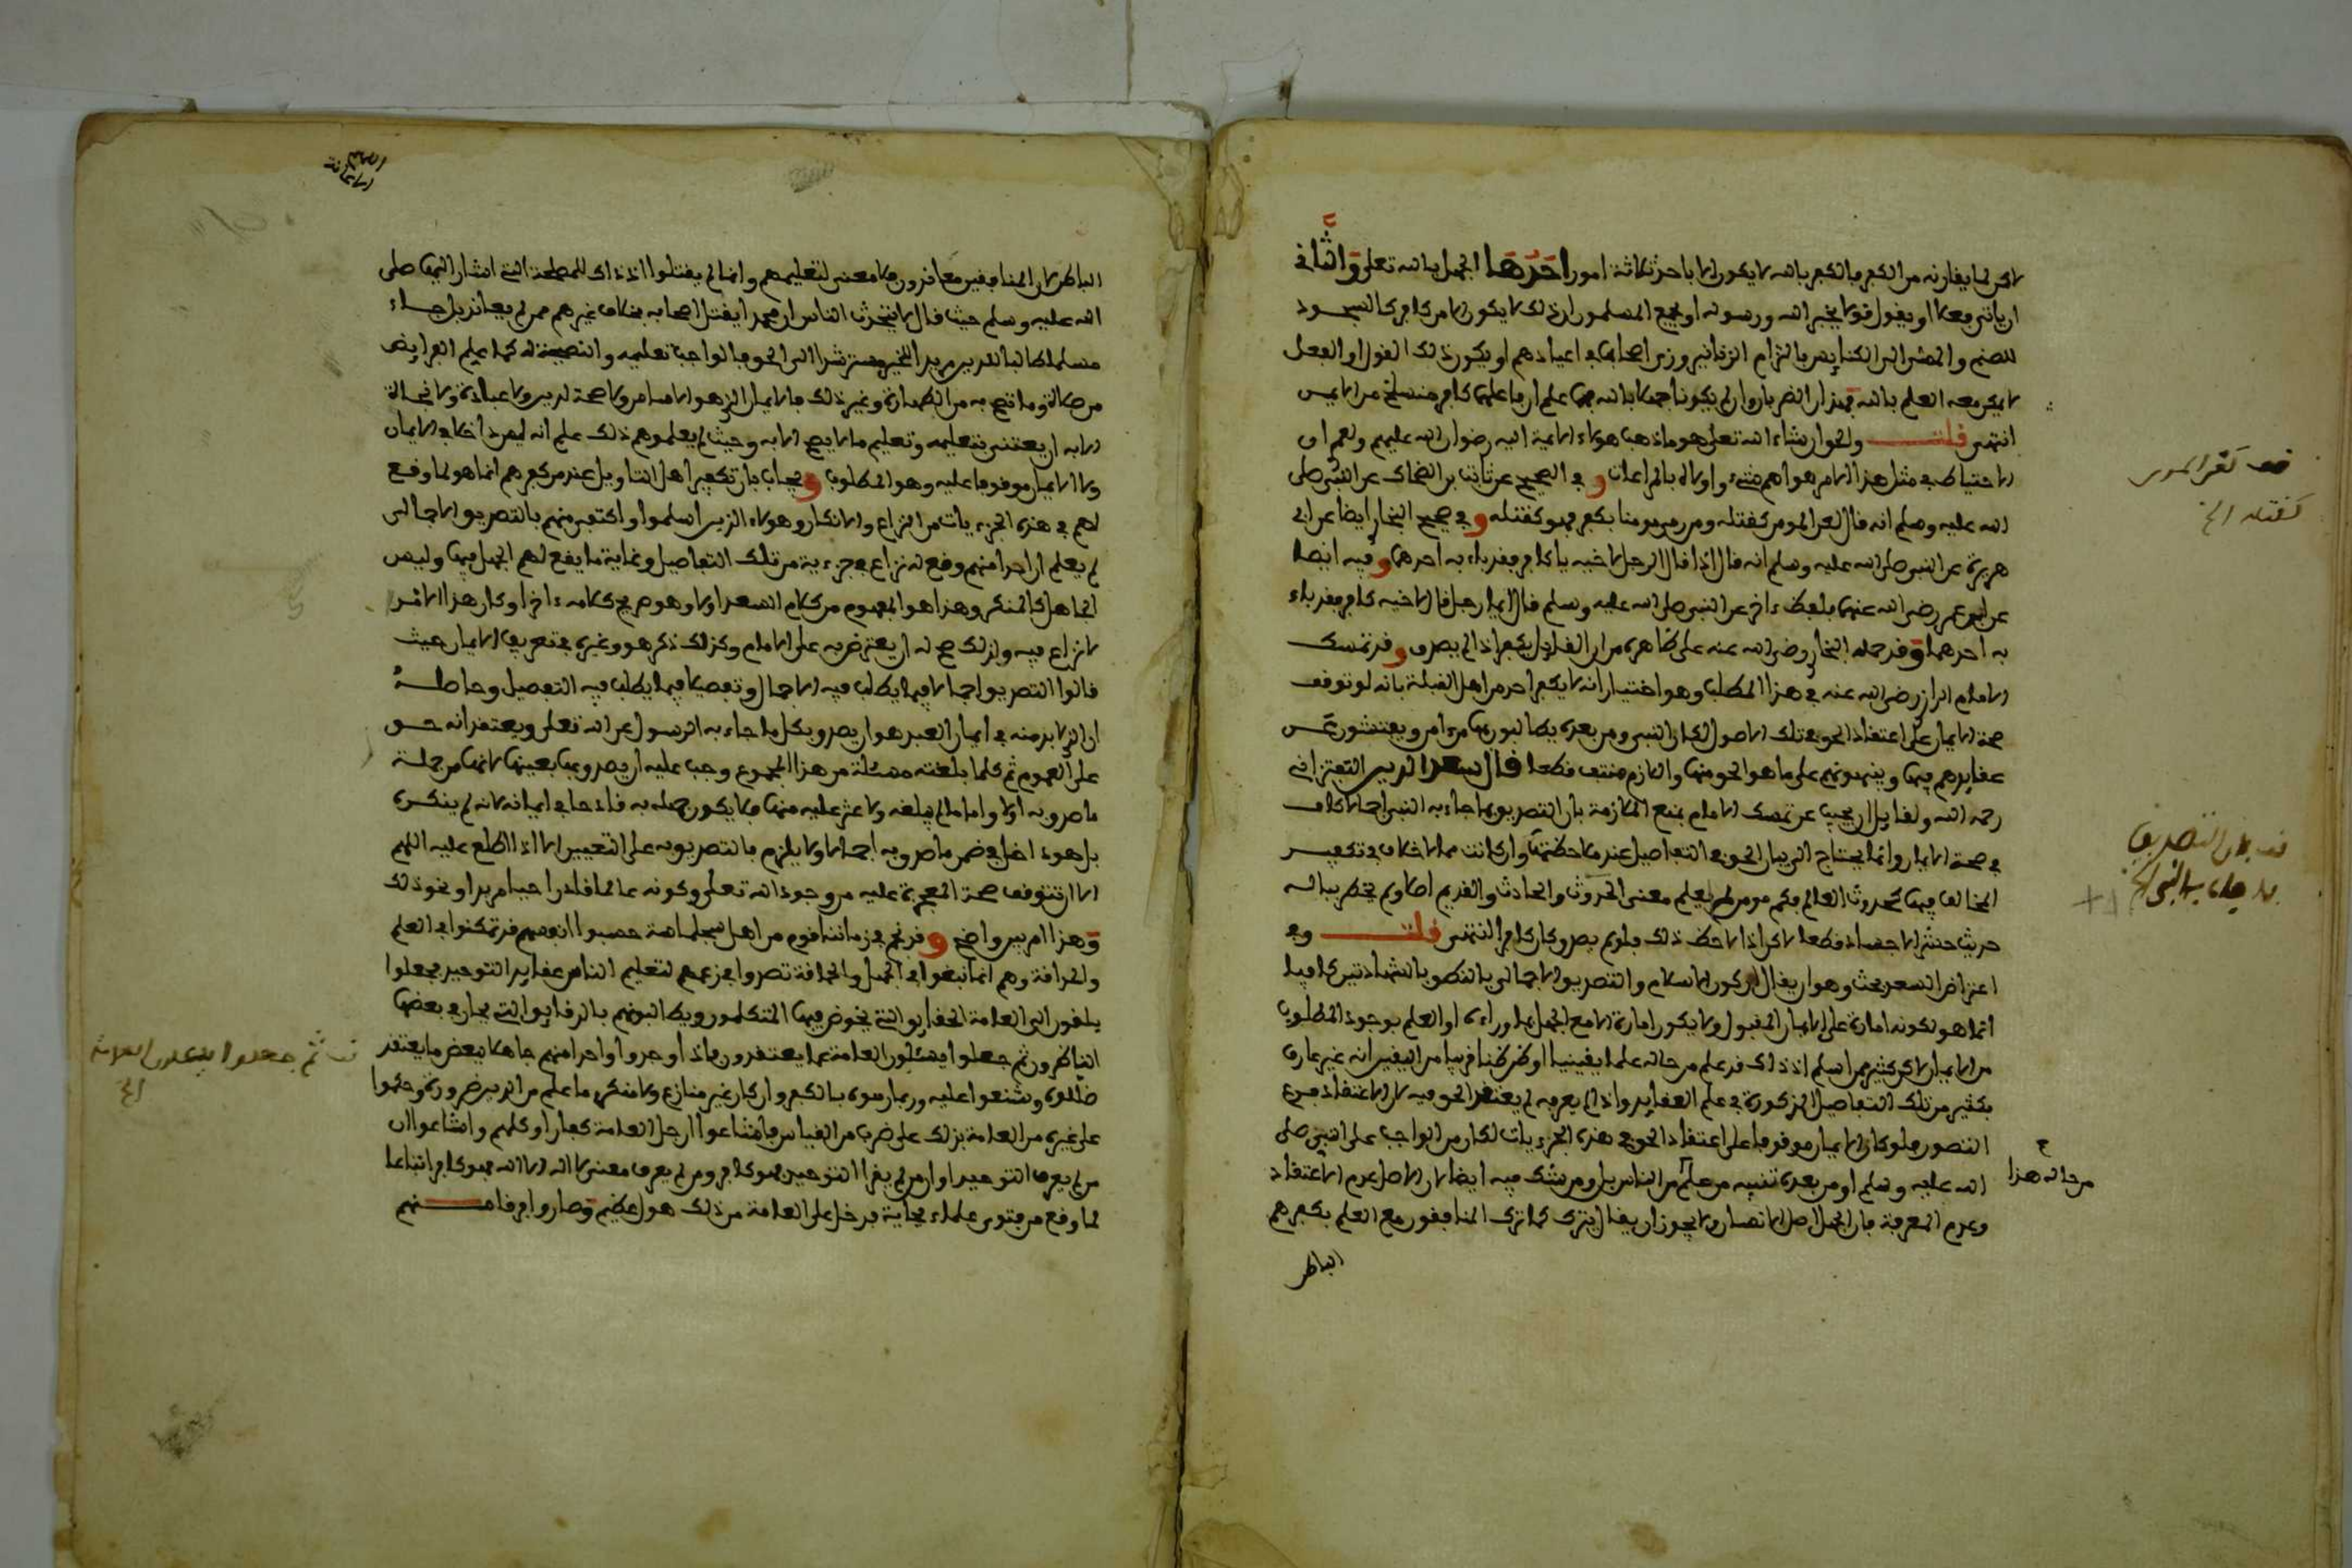 لاكن لما يقارنه من الكفر فالكفر بالله لا يكون الا باحد ثلاثة امور احدها الجهل بالله تعلى والثاني
ان ياتي فعلا او يقول قولا يخبر الله ورسوله او يجمع المسلمون ان ذلك لا يكون الا من كافر كالسجود
للصنم والمشي الى الكنايس بالتزام الزنانير وزي اصحابها في اعيادهم او يكون ذلك القول او الفعل
لا يمكن معه العلم بالله فهذان الضربان وان لم يكونا جهلا بالله فهما علم ان فاعلهما كافر منسلخ من الايمن
انتهى قلت والحق ان شاء الله تعلى هو ما ذهب هولاء الايمة اليه رضوان الله عليهم ولعمرى
الاحتياط في مثل هذا الامر هو اهم شيء واولاه بالمراعات و في الصحيح عن ثابت بن الضحاك عن النبي صلى
الله عليه وسلم انه قال لعن المومن كقتله ومن رمى مومنا بكفر فهو كقتله و في صحيح البخاري ايضا عن ابي
هريرة عن النبي صلى الله عليه وسلم انه قال اذا قال الرجل لاخيه يا كافر فقد باء به احدهما و فيه ايضا
عن ابن عمر رضي الله عنهما بلفظ ءاخر عن النبي صلى الله عليه وسلم قال ايما رجل قال لاخيه كافر فقد باء
به احدهما وقد حمله البخاري رضي الله عنه على ظاهره من ان القايل يكفر اذا لم يصدق و قد تمسك
الامام الرازي رضي الله عنه في هذا المطلب وهو اختيار انه لا يكفر احد من اهل القبلة بانه لو توقف
صحة الايمان على اعتقاد الحق في تلك الاصول لكان النبي ومن بعده يطالبون بها من ءامن ويفتشون عن
عقايدهم فيها وينبهونهم على ما هو الحق منها واللازم منتف قطعا قال سعد الدين التفتزاني
رحمه الله ولقايل ان يجيب عن تمسك الامام بمنع الملازمة بان التصديق بما جاء به النبي اجمالا كاف
في صحة الايمان وانما يحتاج الى بيان الحق في التفاصيل عند ملاحظتها وان كانت مما لا خلاف في تكفير
المخالف فيها كحدوث العالم فكم مومن لم يعلم معنى الحدوث والحادث والقديم اصلا ولم يخطر بباله
حديث حشر الاجساد قطعا لاكن اذا لاحظ ذلك فلو لم يصدق كان كافرا انتهى قلت وفي
اعتراض السعد بحث وهو ان يقال ان كون الاسلام والتصديق الاجمالي بالنطق بالشهادتين كافيا
انما هو لكونه امارة على الايمان المقبول ولا يكون امارة الا مع الجهل بما وراءه او العلم بوجود المطلوب
من الايمان لاكن كثير ممن اسلم اذ ذاك قد علم من حاله علما يقينيا او ظن ظنا قريبا من اليقين انه غير عارف
بكثير من تلك التفاصيل المذكورة في علم العقايد واذا لم يعرفه لم يعتقد الحق فيه لان الاعتقاد فرع
التصور فلو كان الايمان موقوفا على اعتقاد الحق في هذه الجزءيات لكان من الواجب على النبي صلى
الله عليه وسلم او من بعده تنبيه من علم من الناس بل ومن شك فيه ايضا لان الاصل عدم الاعتقاد
وعدم المعرفة فان الجهل اصل الانسان ولا يجوز ان يقال يترك كما ترك المنافقون مع العلم بكفرهم
الباطن
من حاله هذا
قف لعن المومن
كقتله الخ
قف بان التصديق
بما جاء به النبي الخ
الباطن لان المنافقين معاندون فلا معنى لتعليمهم وانما لم يقتلوا اذ ذاك للمصلحة التي اشار اليها صلى
الله عليه وسلم حيث قال لا يتحدث الناس ان محمدا يقتل اصحابه بخلاف غيرهم ممن لم يعاند بل جاء
مسلما طالبا للدين مريدا للخير مسترشدا الى الحق فالواجب تعليمه والنصيحة له كما يعلم الفرايض
من صلاة وما تصح به من الطهارة وغير ذلك فالايمان الذي هو الاساس ولا صحة لدين ولا عبادة ولا نجاة
الا به ان يعتنى بتعليمه وتعليم ما لا يصح الا به وحيث لم يعلموهم ذلك علم انه ليس داخلا في الايمان
ولا الايمان موقوفا عليه وهو المطلوب و يجاب بان تكفير اهل التاويل عند من كفرهم انما هو لما وقع
لهم في هذه الجزءيات من النزاع والانكار وهولاء الذين اسلموا واكتفي منهم بالتصديق الاجمالي
لم يعلم ان احدا منهم وقع له نزاع في جزءية من تلك التفاصيل وغاية ما يقع لهم الجهل فيها وليس
الجاهل كالمنكر وهذا هو المفهوم من كلام السعد اولا وهو صريح كلامه ءاخرا وكان هذا الامر
لا نزاع فيه ولذلك صح له ان يعترض به على الامام وكذلك ذكر هو وغيره في تعريف الايمان حيث
قالوا التصديق اجمالا فيما يطلب فيه الاجمال وتفصيلا فيما يطلب فيه التفصيل وحاصله
ان الذي لا بد منه في ايمان العبد هو ان يصدق بكل ما جاء به الرسول عن الله تعلى ويعتقد انه حق
على العموم ثم كلما بلغته مسئلة من هذا المجموع وجب عليه ان يصدق بها بعينها لانها من جملة
ما صدق به اولا واما ما لم يبلغه ولا عثر عليه منها فلا يكون جهله به قادحا في ايمانه لانه لم ينكره
بل هو داخل في ضمن ما صدق به اجمالا ولا يلزم بالتصديق به على التعيين الا اذا اطلع عليه اللهم
الا ان تتوقف صحة المعجزة عليه من وجود الله تعلى وكونه عالما قادرا حيا مريدا ونحو ذلك
وهذا امر بين واضح و قد نجم في زماننا قوم من اهل سجلماسة حسبوا انفسهم قد تمكنوا في العلم
والحرافة وهم انما نبغوا في الجهل والحماقة تصدوا بزعمهم لتعليم الناس عقايد التوحيد فجعلوا
يلقون الى العامة الحقايق التي يخوض فيها المتكلمون ويطالبونهم بالدقايق التي يحار في بعضها
الناظرون ثم جعلوا يسئلون العامة عما يعتقدون فاذا وجدوا واحدا منهم جاهلا ببعض ما يعتقد
ضللوه وشنعوا عليه وربما رموه بالكفر وان كان غير منازع ولا منكر ما علم من الدين ضرورة وحكموا
على غيره من العامة بذلك على ضرب من القياس فاشاعوا ان جل العامة كفار او كلهم واشاعوا ان
من لم يعرف التوحيد او ان من لم يقرا التوحيد فهو كافر ومن لم يعرف معنى لا اله الا الله فهو كافر اتباعا
لما وقع من فتوى علماء بجاية فدخل على العامة من ذلك هول عظيم وصاروا فرقا منهم
قف ثم جعلوا يسئلون العامة
الخ